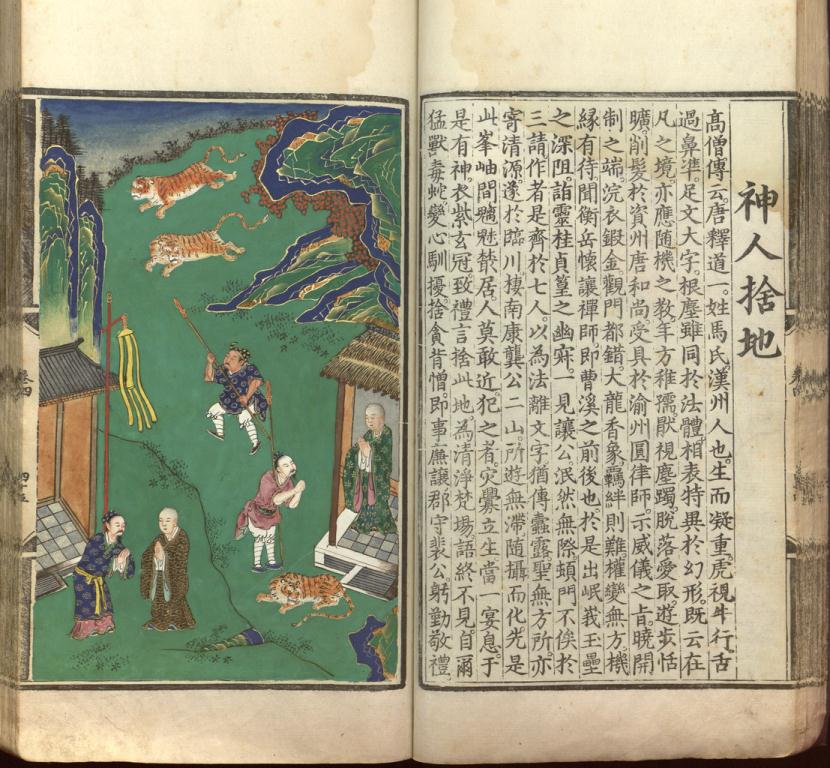 神人捨地
高僧傳云。唐釋道一。姓馬氏。漢州人也。生而凝重。虎視牛行。舌
過鼻準。足文大字。根塵雖同於法體。相表特異於幻形。既云在
凡之境。亦應隨機之教。年方稚孺。厭視塵躅。脫落愛取。遊步恬
曠。削髮於資州唐和尚。受具於渝州圓律師。示威儀之旨。曉開
制之端。浣衣鍛金。觀門都錯。大龍香象。羈絆則難。權變無方。機
緣有待。聞衡岳懷讓禪師。即曹溪之前後也。於是出岷峩玉壘
之深阻。詣靈桂貞篁之幽寂。一見讓公。泯然無際。頓門不俟於
三請。作者是齊於七人。以為法離文字。猶傳蠹露。聖無方所。亦
寄清源。遂於臨川棲南康龔公二山。所遊無滯。隨攝而化。先是
此峯岫間魑魅叢居。人莫敢近。犯之者。灾釁立生。當一宴息。于
是有神。衣紫玄冠。致禮言。捨此地為清淨梵場。語終不見。自爾
猛獸毒蛇。變心馴擾。捨貪背憎。即事廉讓。郡守裴公。躬勤敬禮。
卷四